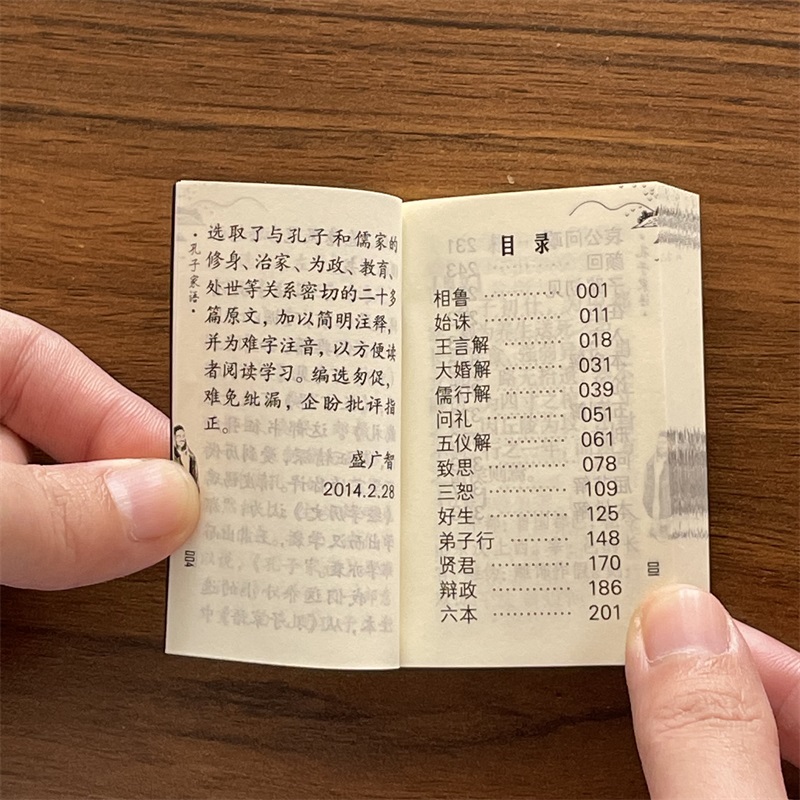 ·孔子家语·
选取了与孔子和儒家的
修身、治家、为政、教育、
处世等关系密切的二十多
篇原文，加以简明注释，
并为难字注音，以方便读
者阅读学习。编选匆促，
难免纰漏，企盼批评指
正。
盛广智
2014.2.28
004
目录
相鲁 ············ 001
始诛 ············ 011
王言解 ·········· 018
大婚解 ·········· 031
儒行解 ·········· 039
问礼 ············ 051
五仪解 ·········· 061
致思 ············ 078
三恕 ············ 109
好生 ············ 125
弟子行 ·········· 148
贤君 ············ 170
辩政 ············ 186
六本 ············ 201
001